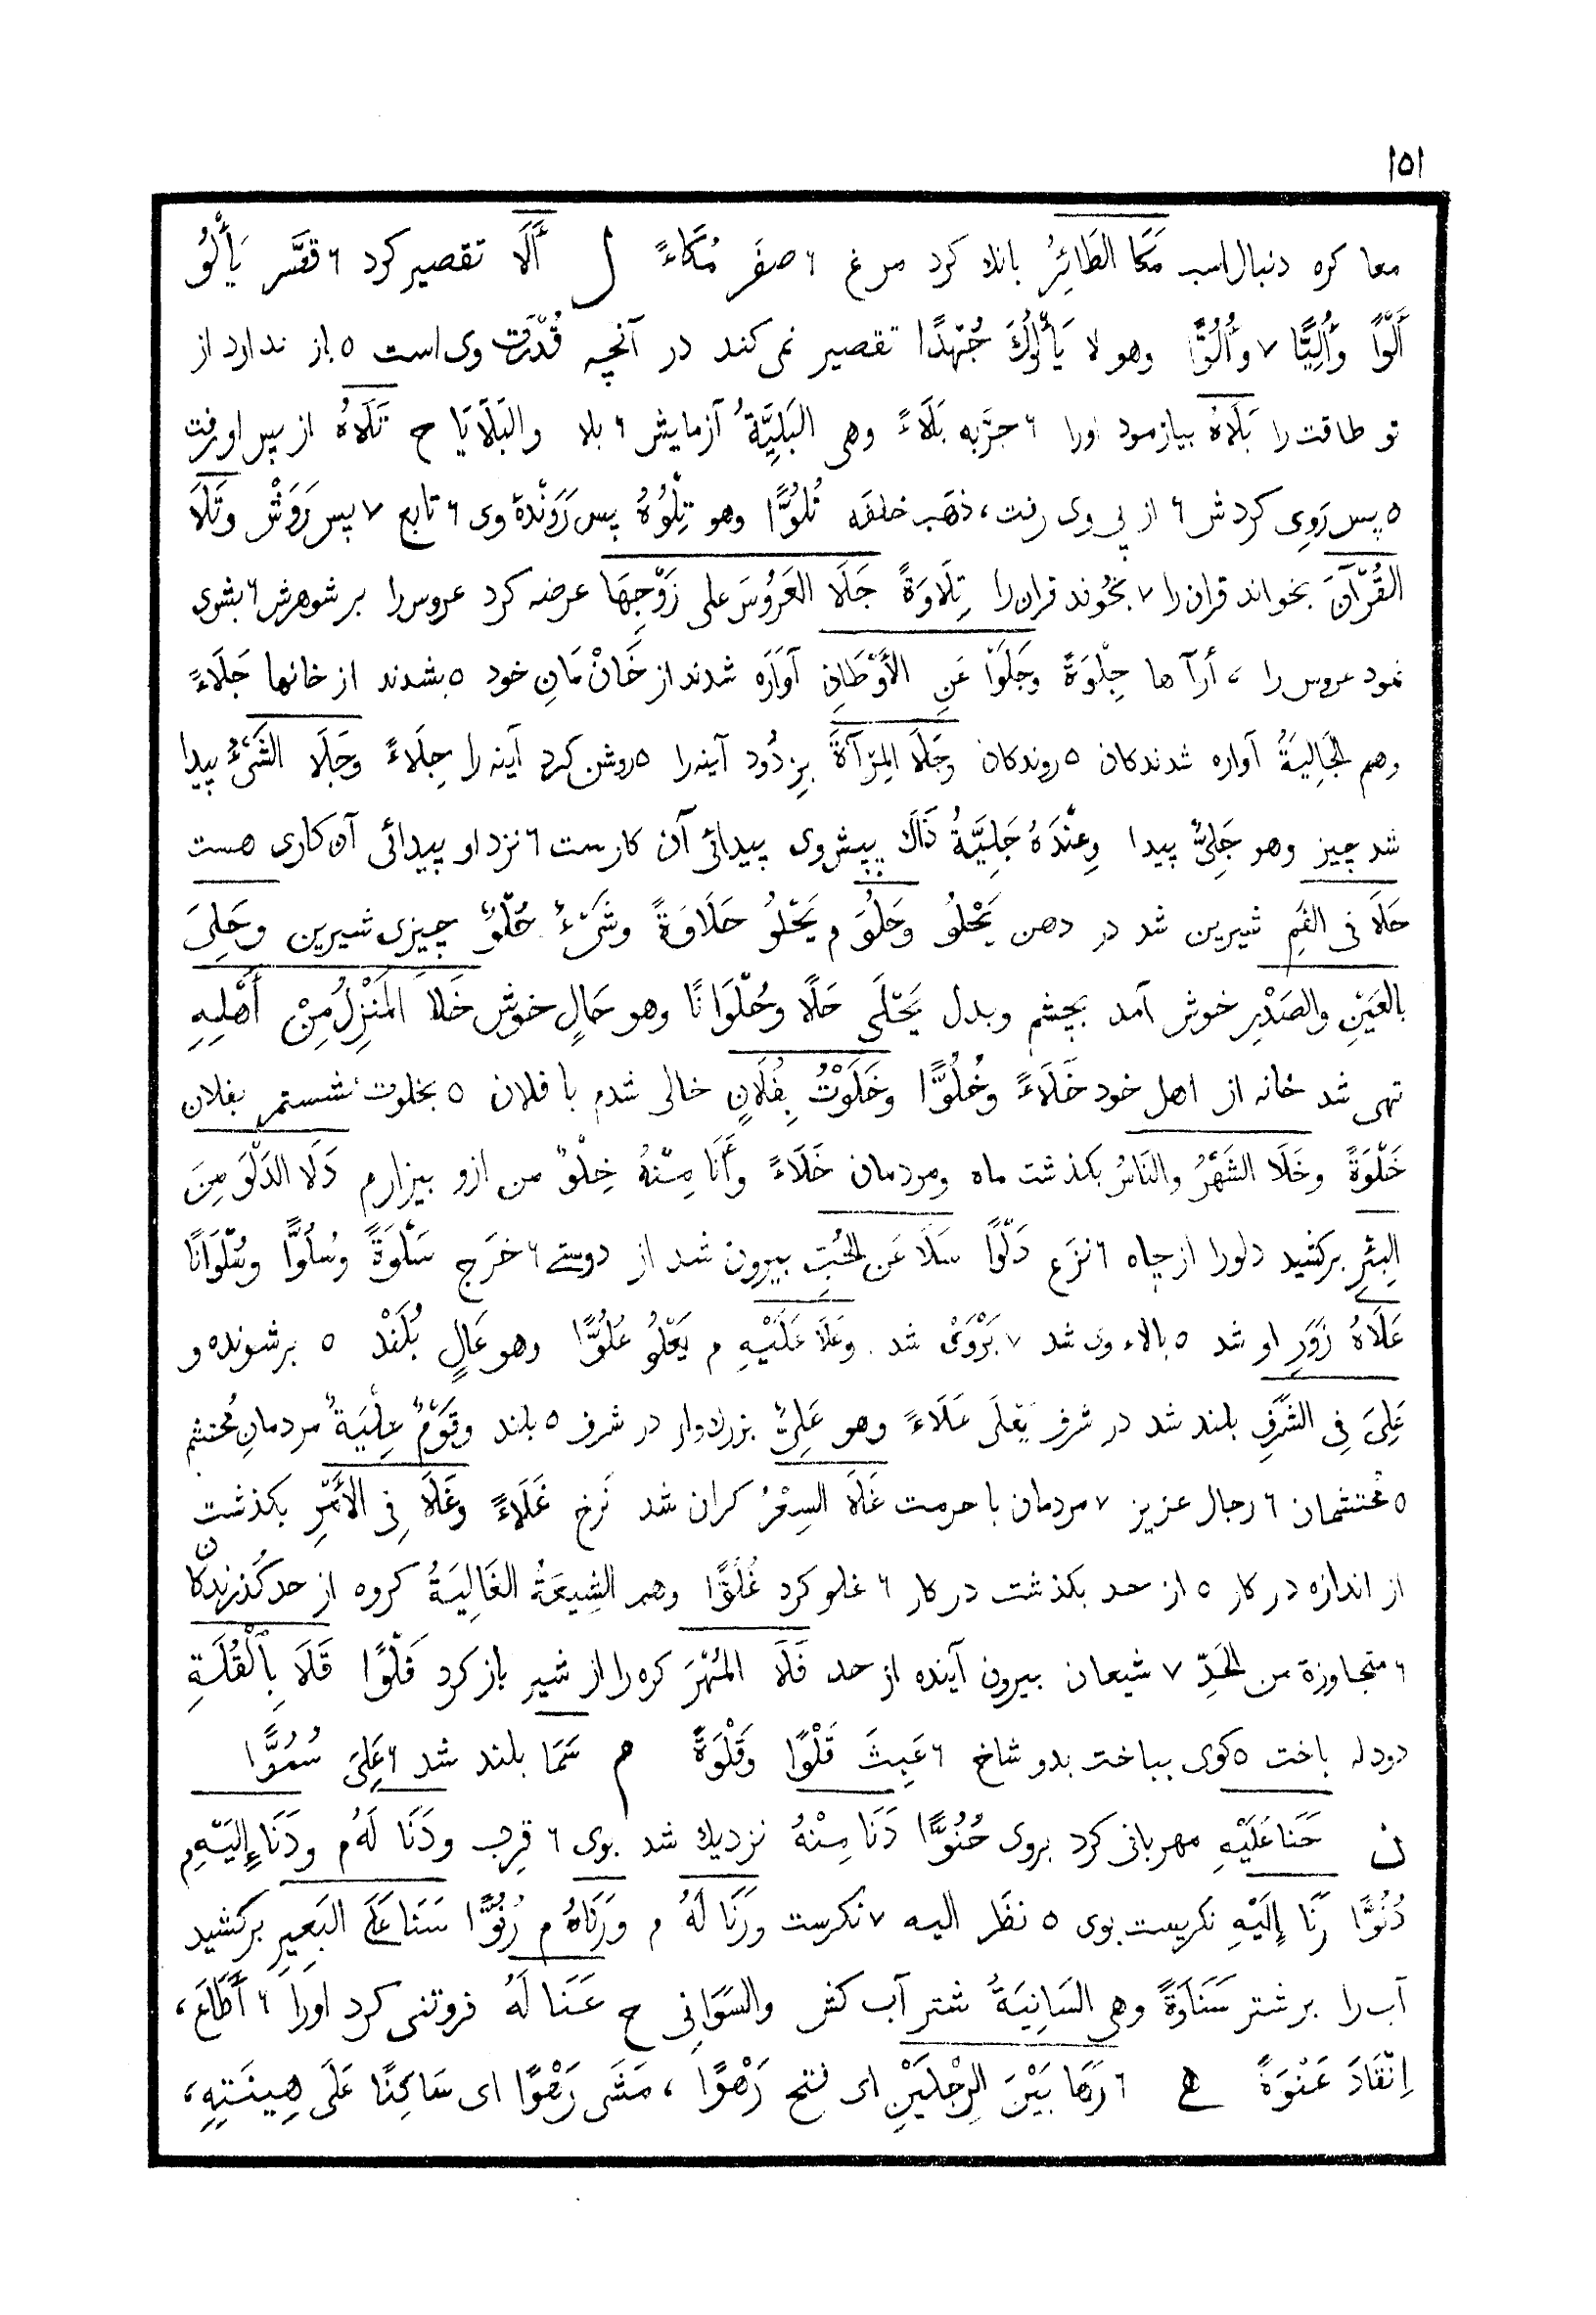 ١٥١
معا كره دنبال اسب مَكَا الطَائِرُ بانك كرد مرغ ٦ صفَر مُكَاءً ل أَلَا تقصير كرد ٦ قصَّر يَأْلُو
أَلْوًا وأُلِيًّا ٧ وأُلُوًّا وهو لا يَأْلُوكَ جُهْدًا تقصير نمى كند در آنچه قُدْرَت وى است ٥ باز ندارد از
تو طاقت را بَلَاهُ بيازمود اورا ٦ جرَّبه بَلَاءً وهى البَلِيَّةُ آزمايش ٦ بلا والبَلَايَا ح تَلَاهُ از پس او رفت
٥ پس رَوِى كردش ٦ از پى وى رفت، ذهَب خلفَه تُلُوًّا وهو تِلْوُهُ پس رَوَنْدهٔ وى ٦ تابع ٧ پس رَوَشْ وتَلَا
القُرْآنَ بخواند قران را ٧ بخُوند قران را تِلَاوَةً جَلَا العَرُوسَ على زَوْجِهَا عرضه كرد عروس را بر شوهرش ٦ بشوى
نمود عروس را ، أرآها جِلْوَةً وجَلَوْا عَنِ الأَوْطَانِ آوَارَه شدند از خَانْ مَانِ خود ٥ بشدند از خانها جَلَاءً
وهم الجَالِيَةُ آواره شدندكان ٥ روندكان وجَلَا المِرْآةَ بِزدُود آينه را ٥ روشن كرد آينه را جِلَاءً وجَلَا الشَىْءُ پيدا
شد چيز وهو جَلِىٌّ پيدا وعِنْدَهُ جَلِيَّةُ ذَاكَ پيش وى پيدائى آن كارست ٦ نزد او پيدائى آن كارى هست
حَلَا فى الفَمِ شيرين شد در دهن يَحْلُو وحَلُوَ م يَحْلُو حَلَاوَةً وشَىْءٌ حُلْوٌ چيزى شيرين وحَلِىَ
بالعَيْنِ والصَدْرِ خوش آمد بچشم وبدل يَحْلَى حَلًا وحُلْوَانًا وهو حَالٍ خوش خَلَا المَنْزِلُ مِنْ أَهْلِهِ
تهى شد خانه از اهل خود خَلَاءً وخُلُوًّا وخَلَوْتُ بِفُلَانٍ خالى شدم با فلان ٥ بخلوت نشستم بفلان
خَلْوَةً وخَلَا الشَهْرُ والنَاسُ بكذشت ماه ومردمان خَلَاءً وأَنَا مِنْهُ خِلْوٌ من ازو بيزارم دَلَا الدَلْوَ مِنَ
البِئْرِ بركشيد دلورا از چاه ٦ نزَع دَلْوًا سَلَا عَن الحُبِّ بيرون شد از دوستے ٦ خرَج سَلْوَةً وسُلُوًّا وسُلْوَانًا
عَلَاهُ زَوَرِ او شد ٥ بالاء وى شد ٧ بَرْوَىْ شد وعَلَا عَلَيْهِ م يَعْلُو عُلُوًّا وهو عَالٍ بُلَنْد ٥ بر شونده و
عَلِىَ فِى الشَرَفِ بلند شد در شرف يَعْلَى عَلَاءً وهو عَلِىٌّ بزركوار در شرف ٥ بلند وقَوْمٌ عِلْيَةٌ مردمانِ مُحتشم
٥ مُحتشمان ٦ رجال عزيز ٧ مردمان با حرمت غَلَا السِعْرُ كران شد نَرخ غَلَاءً وغَلَا فِى الأَمْرِ بكذشت
از اندازه در كار ٥ از حد بكذشت در كار ٦ غلو كرد غُلُوًّا وهم الشِيعَةُ الغَالِيَةُ كروه از حد كُذرندكان
٦ متجاوزة من الحَدِّ ٧ شيعان بيرون آينده از حد فَلَا المُهْرَ كره را از شير باز كرد فَلْوًا قَلَا بِالْقُلَةِ
دودله باخت ٥ كوى بباخت بدو شاخ ٦ عَبِثَ قَلْوًا وقَلْوَةً م سَمَا بلند شد ٦ عَلِىَ سُمُوًّا
ن حَنَا عَلَيْهِ مهربانى كرد بروى حُنُوًّا دَنَا مِنْهُ نزديك شد بوى ٦ قرِب ودَنَا لَهُ م ودَنَا إِلَيْهِ م
دُنُوًّا رَنَا إِلَيْهِ نكريست بوى ٥ نظَر اليه ٧ نكرست ورَنَا لَهُ م ورَنَاهُ م رُنُوًّا سَنَا عَلَى البَعِيرِ بركشيد
آب را بر شتر سَنَاوَةً وهى السَانِيَةُ شتر آب كش والسَوَانِى ح عَنَا لَهُ فروتنى كرد اورا ٦ أَطَاعَ،
اِنْقَادَ عَنْوَةً ه ٦ رَهَا بَيْنَ الرِجْلَيْنِ اى فتح رَهْوًا ، مَشَى رَهْوًا اى سَاكِنًا عَلَى هِينَتِهِ،